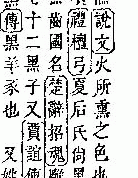 說文火所熏之色也
禮檀弓夏后氏尚黑
齒國名楚辭招魂
七十二黑子又賈誼傳
傳黑羊豕也 又姓